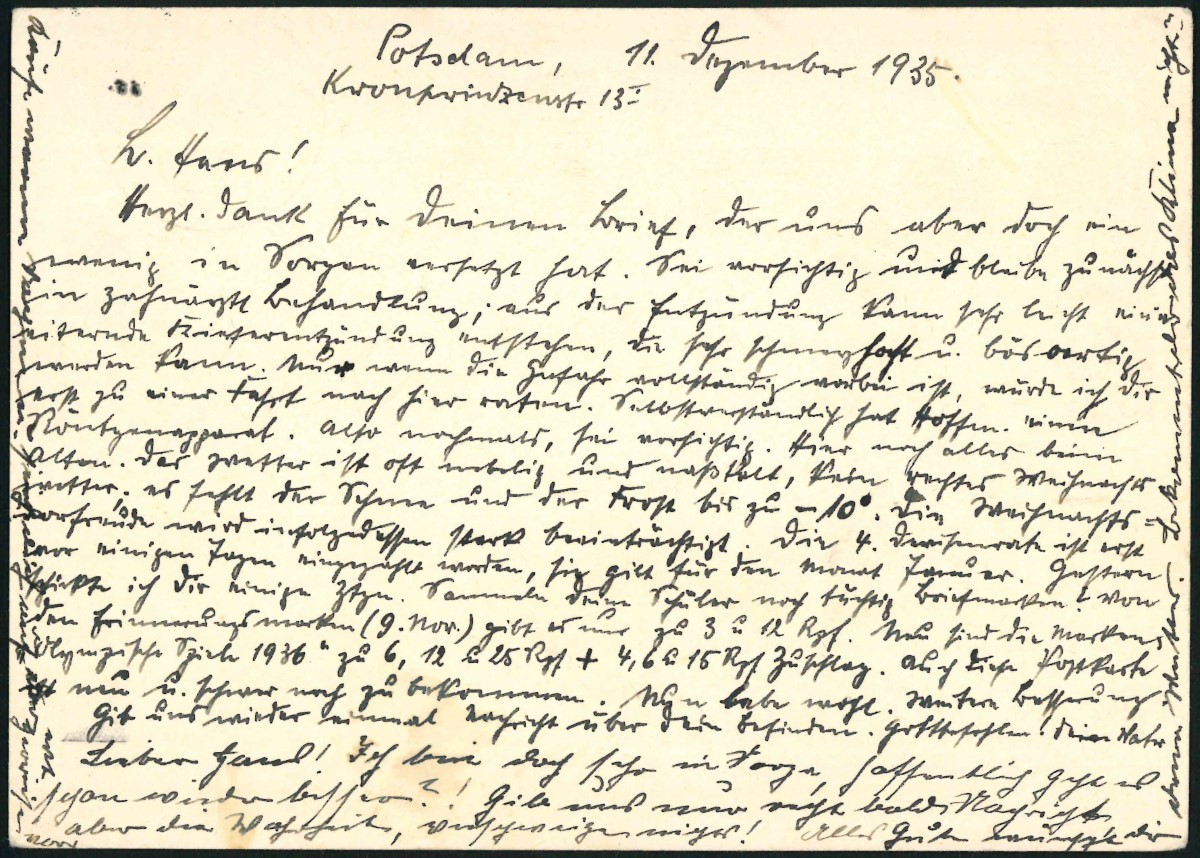 Potsdam, 11. Dezember 1935.
Kronprinzenstr 13I
Lb. Hans!
Herzl. Dank für Deinen Brief, der uns aber doch ein
wenig in Sorgen versetzt hat. Sei vorsichtig und bleibe zunächst
in zahnärztl Behandlung; aus der Entzündung kann sehr leicht eine
eiternde Kieferentzündung entstehen, die sehr schmerzhaft u. bösartig
werden kann. Nur wenn die Gefahr vollständig vorbei ist, würde ich Dir
erst zu einer Fahrt nach hier raten. Selbstverständlich hat Hoffm. einen
Röntgenapparat. Also nochmals, sei vorsichtig. Hier noch alles beim
Alten. Das Wetter ist oft nebelig und naßkalt, kein rechtes Weihnachts-
wetter, es fehlt der Schnee und der Frost bis zu - 10°. Die Weihnachts-
vorfreude wird infolgedessen stark beeinträchtigt. Die 4. Devisenrate ist erst
vor einigen Tagen eingezahlt worden, sie gilt für den Monat Januar. Gestern
schickte ich Dir einige Ztgn. Sammeln Deine Schüler noch tüchtig Briefmarken? Von
den Erinnerungsmarken (9. Nov.) gibt es nur zu 3 u 12 Rpf. Neu sind die Marken
"Olympische Spiele 1936" zu 6, 12 u 25 Rpf + 4, 6 u 15 Rpf Zuschlag. Auch diese Postkarte
ist neu u. schwer noch zu bekommen. Nun lebe wohl. Weitere Besserung
Gib uns wieder einmal Nachricht über Dein Befinden. Gottbefohlen! Dein Vater
Lieber Hans! Ich bin doch sehr in Sorge, hoffentlich geht es
schon wieder besser?! Gib uns nur recht bald Nachricht
aber die Wahrheit, verschweige nichts! Alles Gute wünscht Dir
Deine Mutter. Bekommt Dir das Klima nicht